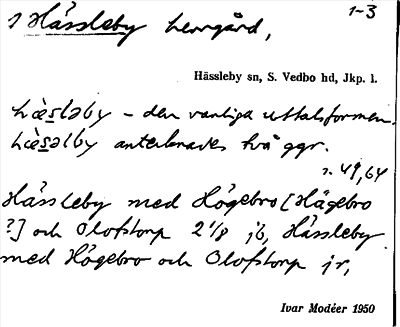 1-3
1 Hässleby herrgård,
Hässleby sn, S. Vedbo hd, Jkp. l.
hæ̀sləby – den vanliga uttalsformen.
hæ̀səlby antecknades två ggr.
s. 49, 64
Hässleby med Högebro [Hägebro
?] och Olofstorp 2 1/8 jb, Hässleby
med Högebro och Olofstorp jr,
Ivar Modéer 1950